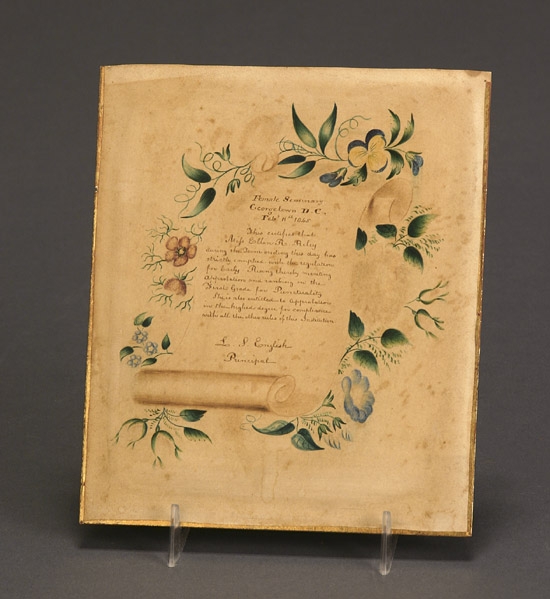 Female Seminary
Georgetown D.C.
Feb. 1845
This certifies that
Miss Esther R. Riley
during the Term ending this day has
strictly complied with the regulation
for Early Rising thereby meriting
Approbation and ranking in the
First Grade for Punctuality
She is also entitled to Approbation
in the highest degree for compliance
with all the other rules of this Institution
L. S. English
Principal